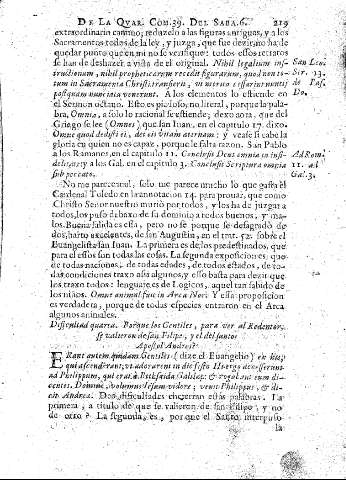 DE LA QVAR. COM. 39. DEL SABA. 6. 219
extraordinario camino; reduzelo a las figuras antiguas, y a los
Sacramentos todos de la ley, y juzga, que fue dezirno ha de
quedar punto que en mi no se verifique: todos essos retratos
se han de deshazer a vista de el original. Nihil legalium ins-
tructionum, nihil propheticarum recedit figurarum, quod non to-
tum in Sacramenta Christi
postquam nunciata venerunt. A los elementos lo estiende en
el Sermon octauo. Esto es piadoso, no literal, porque la pala-
bra, Omnia, a solo lo racional se estiende; dexo aora, que del
Griego se lee (Omnes) que san Iuan. en el capitulo 17. dixo.
Omne quod dedisti ei, det eis vitam aeternam: y vease si cabe la
gloria en quien no es capaz, porque le falta razon. San Pablo
a los Romanos, en el capitulo 11. Conclusit Deus omnia in infi-
delitate y a los Gal. en el capitulo 3. Conclusit Scriptura omnia
sub peccato.
San Leo
Ser. 13.
de Pas.
Do.
Ad Rom.
11. ad
Gal. 3.
No me parece mal, solo me parece mucho lo que gasta el
Cardenal Toledo en la annotacion 14. para prouar, que como
Christo Señor nuestro murio por todos, y los ha de juzgar a
todos, los puso debaxo de su dominio a todos buenos, y ma-
los. Buena salida es esta, pero no sè porque se desagradò de
dos, harto excelentes, de san Augustin, en el trat. 52. sobre el
Euangelista san Iuan. La primera es de los predestinados, que
para el essos son todas las cosas. La segunda exposicion es, que
de todas naciones, de todas edades, de todos estados, de to-
das condiciones traxo assi algunos, y esso basta para dezir que
los traxo todos: lenguaje es de Logicos, aquel tan sabido de
los niños. Omne animal fuit in Arca Noe: Y essa proposicion
es verdadera, porque de todas especies entraron en el Arca
algunos animales.
Dificultad quarta. Porque los Gentiles, para ver al Redentor,
se valieron de san Filipe, y el del santo
Apostol Andres?
ERant autem quidam Gentiles (dize el Euangelio) ex his,
qui ascenderant, vt adorarent in die festo Hi ergo accesserunt
ad Philippum, qui erat à Bethsaida Galilaeae & rogabant eum di-
centes. Domine, volumus Iesum videre, venit Philippus, & di-
cit Andreae. Dos dificultades encierran estas palabras. La
primera, a titulo de que se valieron de san Filipo, y no
de otro? La segunda, es, por que el Santo interpuso
la